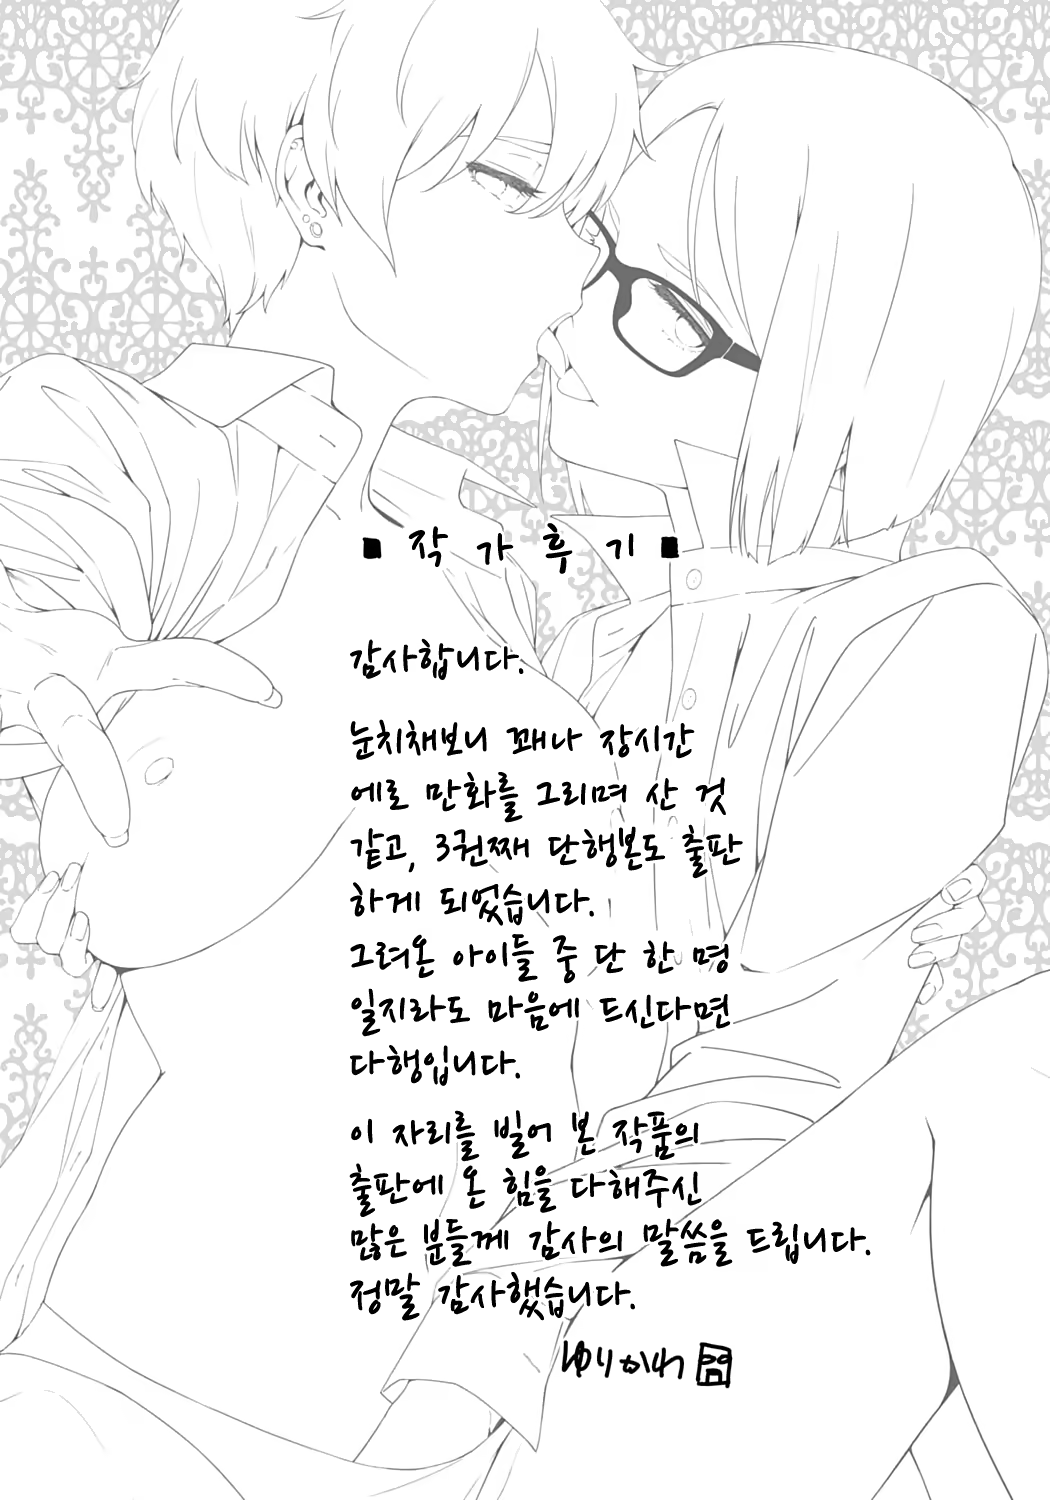 ■ 작가후기 ■
감사합니다.
눈치채보니 꽤나 장시간
에로 만화를 그리며 산 것
같고, 3권째 단행본도 출판
하게 되었습니다.
그려온 아이들 중 단 한 명
일지라도 마음에 드신다면
다행입니다.
이 자리를 빌어 본 작품의
출판에 온 힘을 다해주신
많은 분들께 감사의 말씀을 드립니다.
정말 감사했습니다.
ゆりかわ